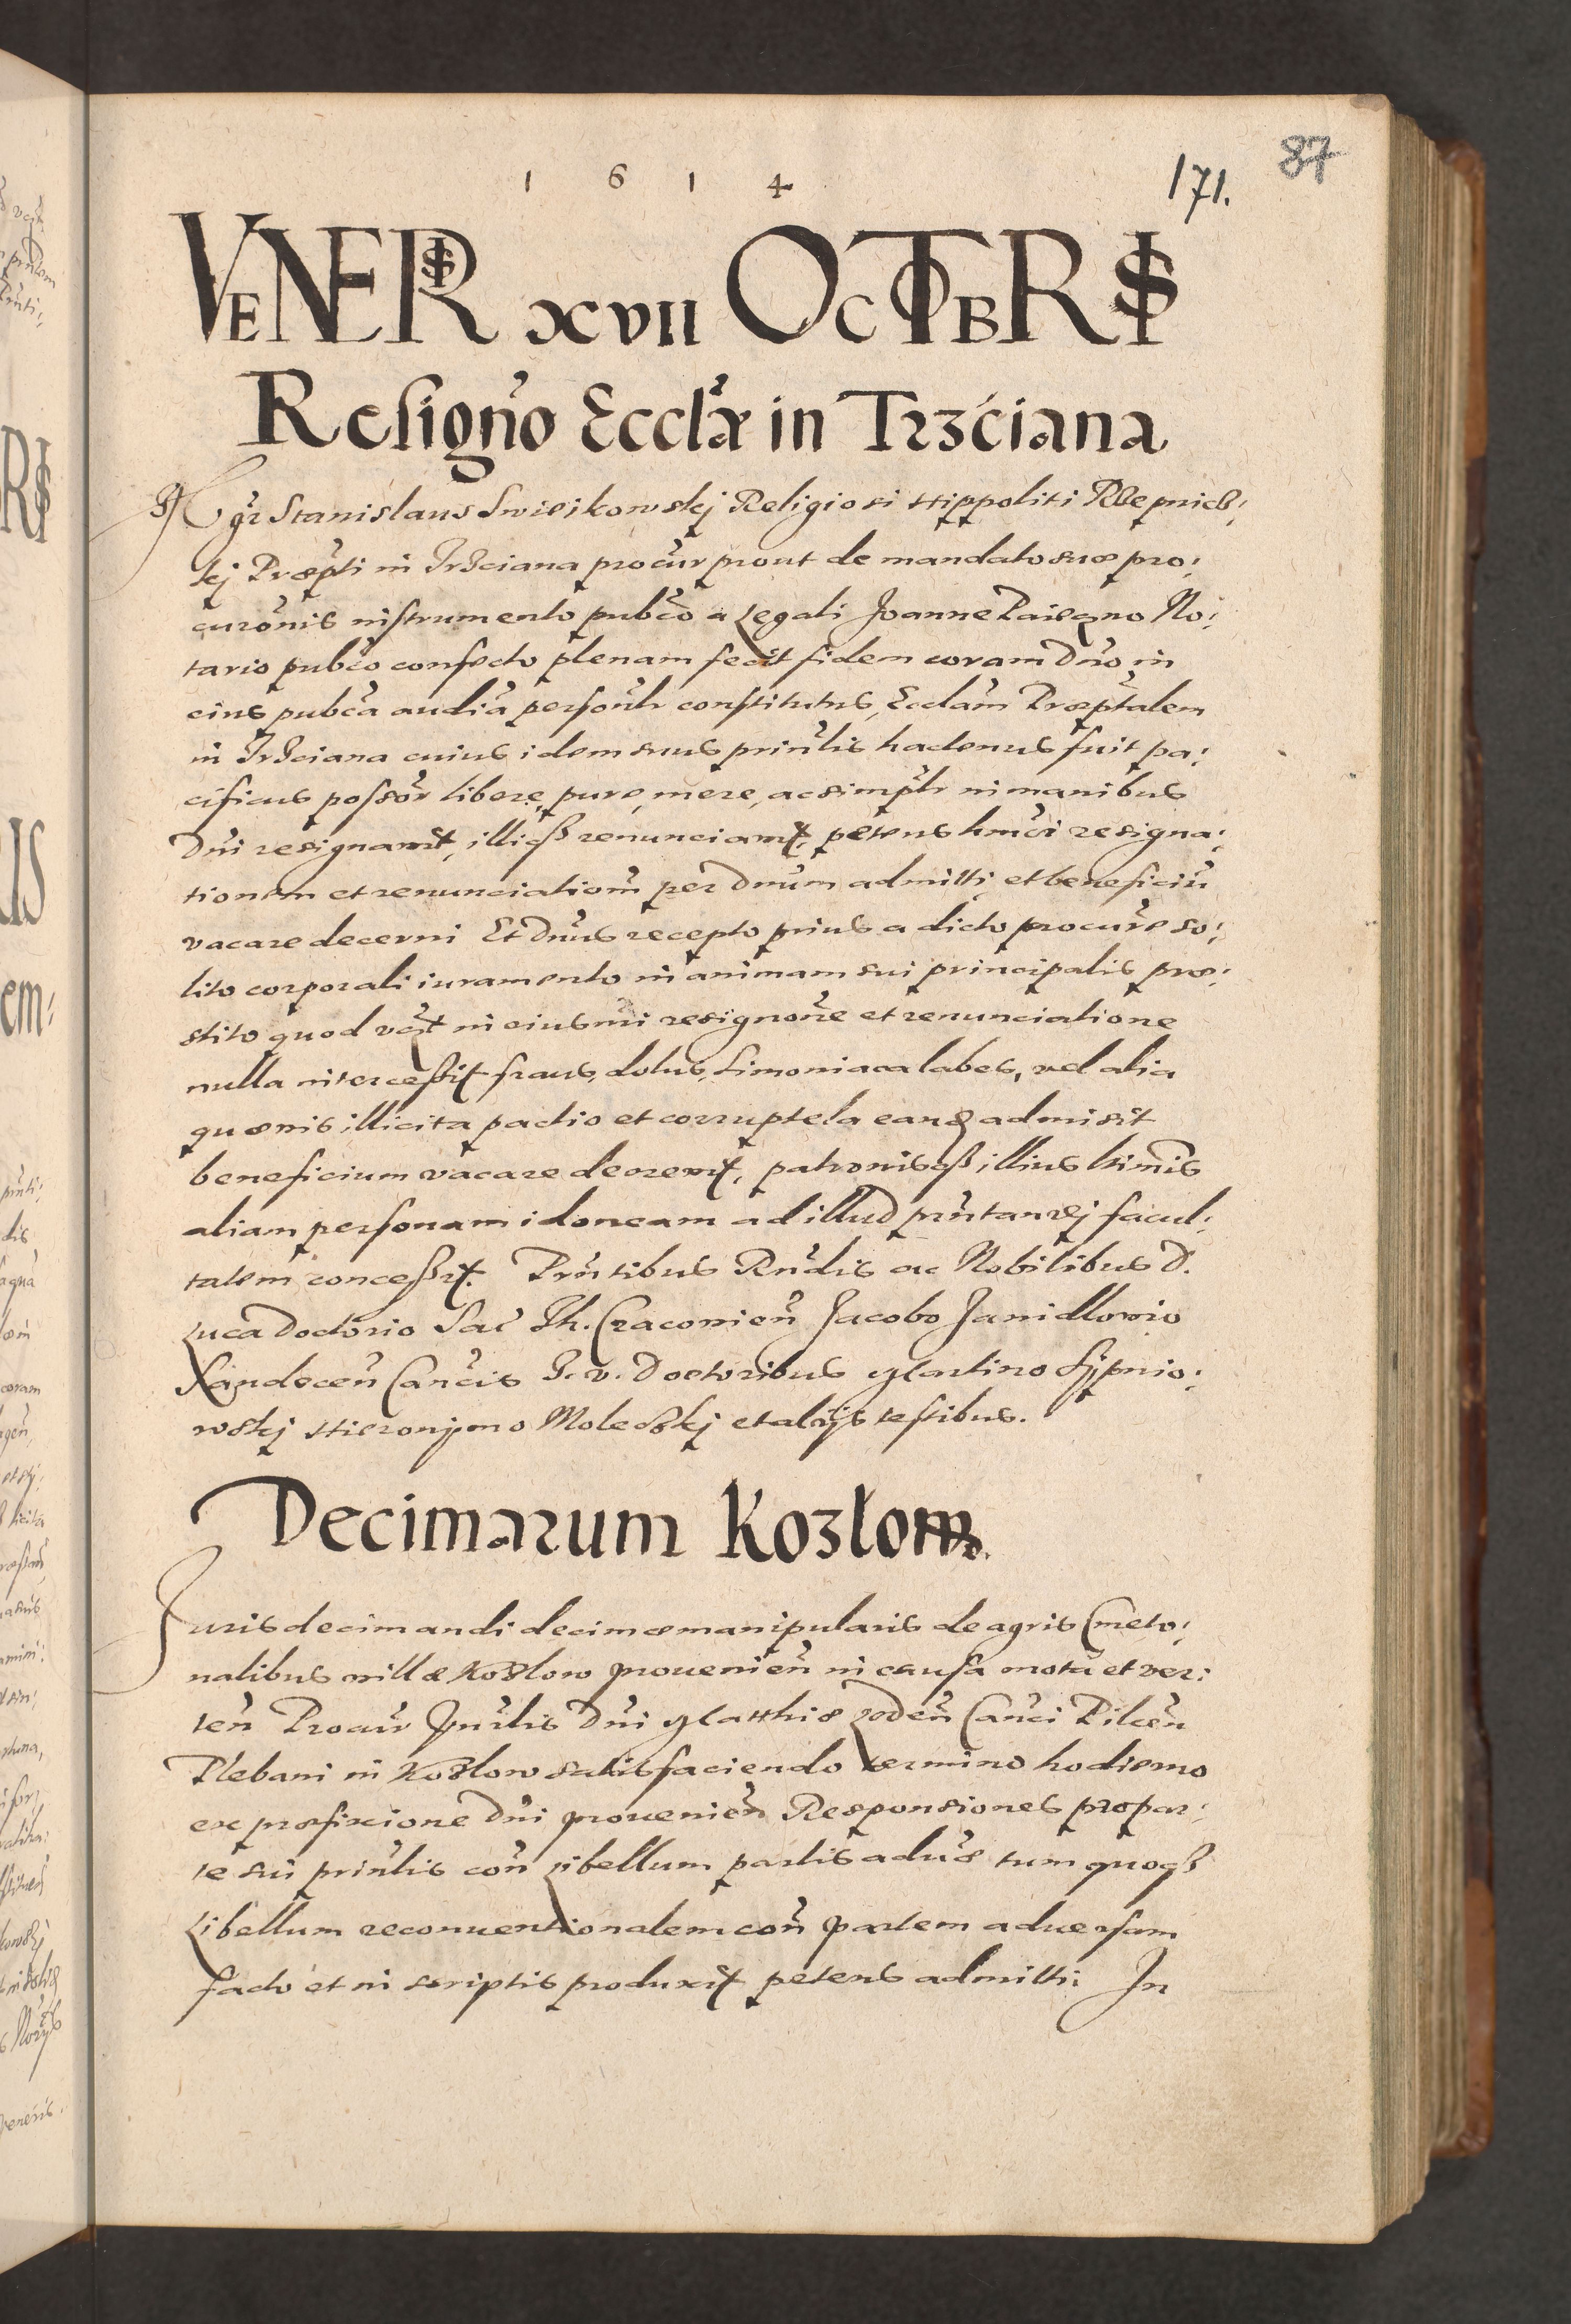 1 6 1 4
171.
87
VENERIS XVII OCTOBRIS
Resigno Eccliæ in Trzciana
Mgr Stanislaus Swieikowskj Religiosi Hippoliti Rzepnicz;
kj Præpti in Trzciana procur prout de mandato suæ pro;
curonis instrumento pubco a Legali Joanne No;
tario pubco confecto plenam fecit fidem coram Dno in
eius pubca audia personlr constitutus, Ecclam Præptalem
in Trzciana cuius idem suus prinlis hactenus fuit pa;
cificus possor libere, pure, mere, ac simplr in manibus
Dni resignavit, illiqß renunciavit, petens hmoi resigna;
tionem et renunciationem per Dnum admitti et beneficiu
vacare decerni Et Dnus recepto prius a dicto procure so;
lito corporali iuramento in animam sui principalis præ;
stito quod in eiusmi resignone et renunciatione
nulla intercessit fraus, dolus, Simoniaca labes, vel alia
quævis illicita pactio et corruptela eanq admisit
beneficium vacare decrevit, patronisqß illius ltimis
aliam personam idoneam ad illud prntandj facul;
tatem concessit. Prntibus Rndis ac Nobilibus D.
Luca Doctorio Sac Th. Cracovien Jacobo Janidlovio
Sandecen Cancis J. V. Doctoribus Martino Sypnio;
wskj Hieronymo Moleckj et alijs testibus.
Decimarum Kozlow.
Juris decimandi decimæ manipularis de agris Cmeto;
nalibus villæ Kozlow provenien in causa mota et ver;
ten Procur Vnrlis Dni Matthiæ Loden Canci Pilcen
Plebani in Kozlow satisfaciendo termino hodierno
ex præfixione Dni provenien Responsiones pro par;
te sui prinlis con Libellum partis aduæ tum quoqß
Libellum reconventionalem con partem adversam
facto et in scriptis produxit petens admitti. In